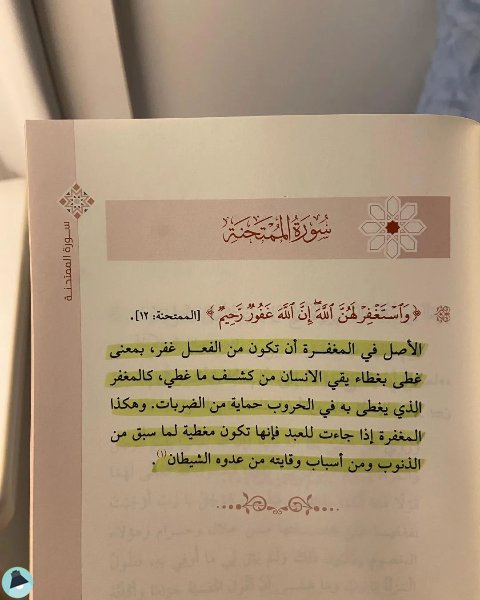 سورة الممتحنة
سُورَةُ المُمْتَحنَة
﴿ وَٱسْتَغْفِرْ لَهُنَّ ٱللَّهَ ۖ إِنَّ ٱللَّهَ غَفُورٌ رَّحِيمٌ ﴾ [الممتحنة: ١٢].
الأصل في المغفرة أن تكون من الفعل غفر، بمعنى
غطى بغطاء يقي الانسان من كشف ما غطي، كالمغفر
الذي يغطى به في الحروب حماية من الضربات. وهكذا
المغفرة إذا جاءت للعبد فإنها تكون مغطية لما سبق من
الذنوب ومن أسباب وقايته من عدوه الشيطان(١).